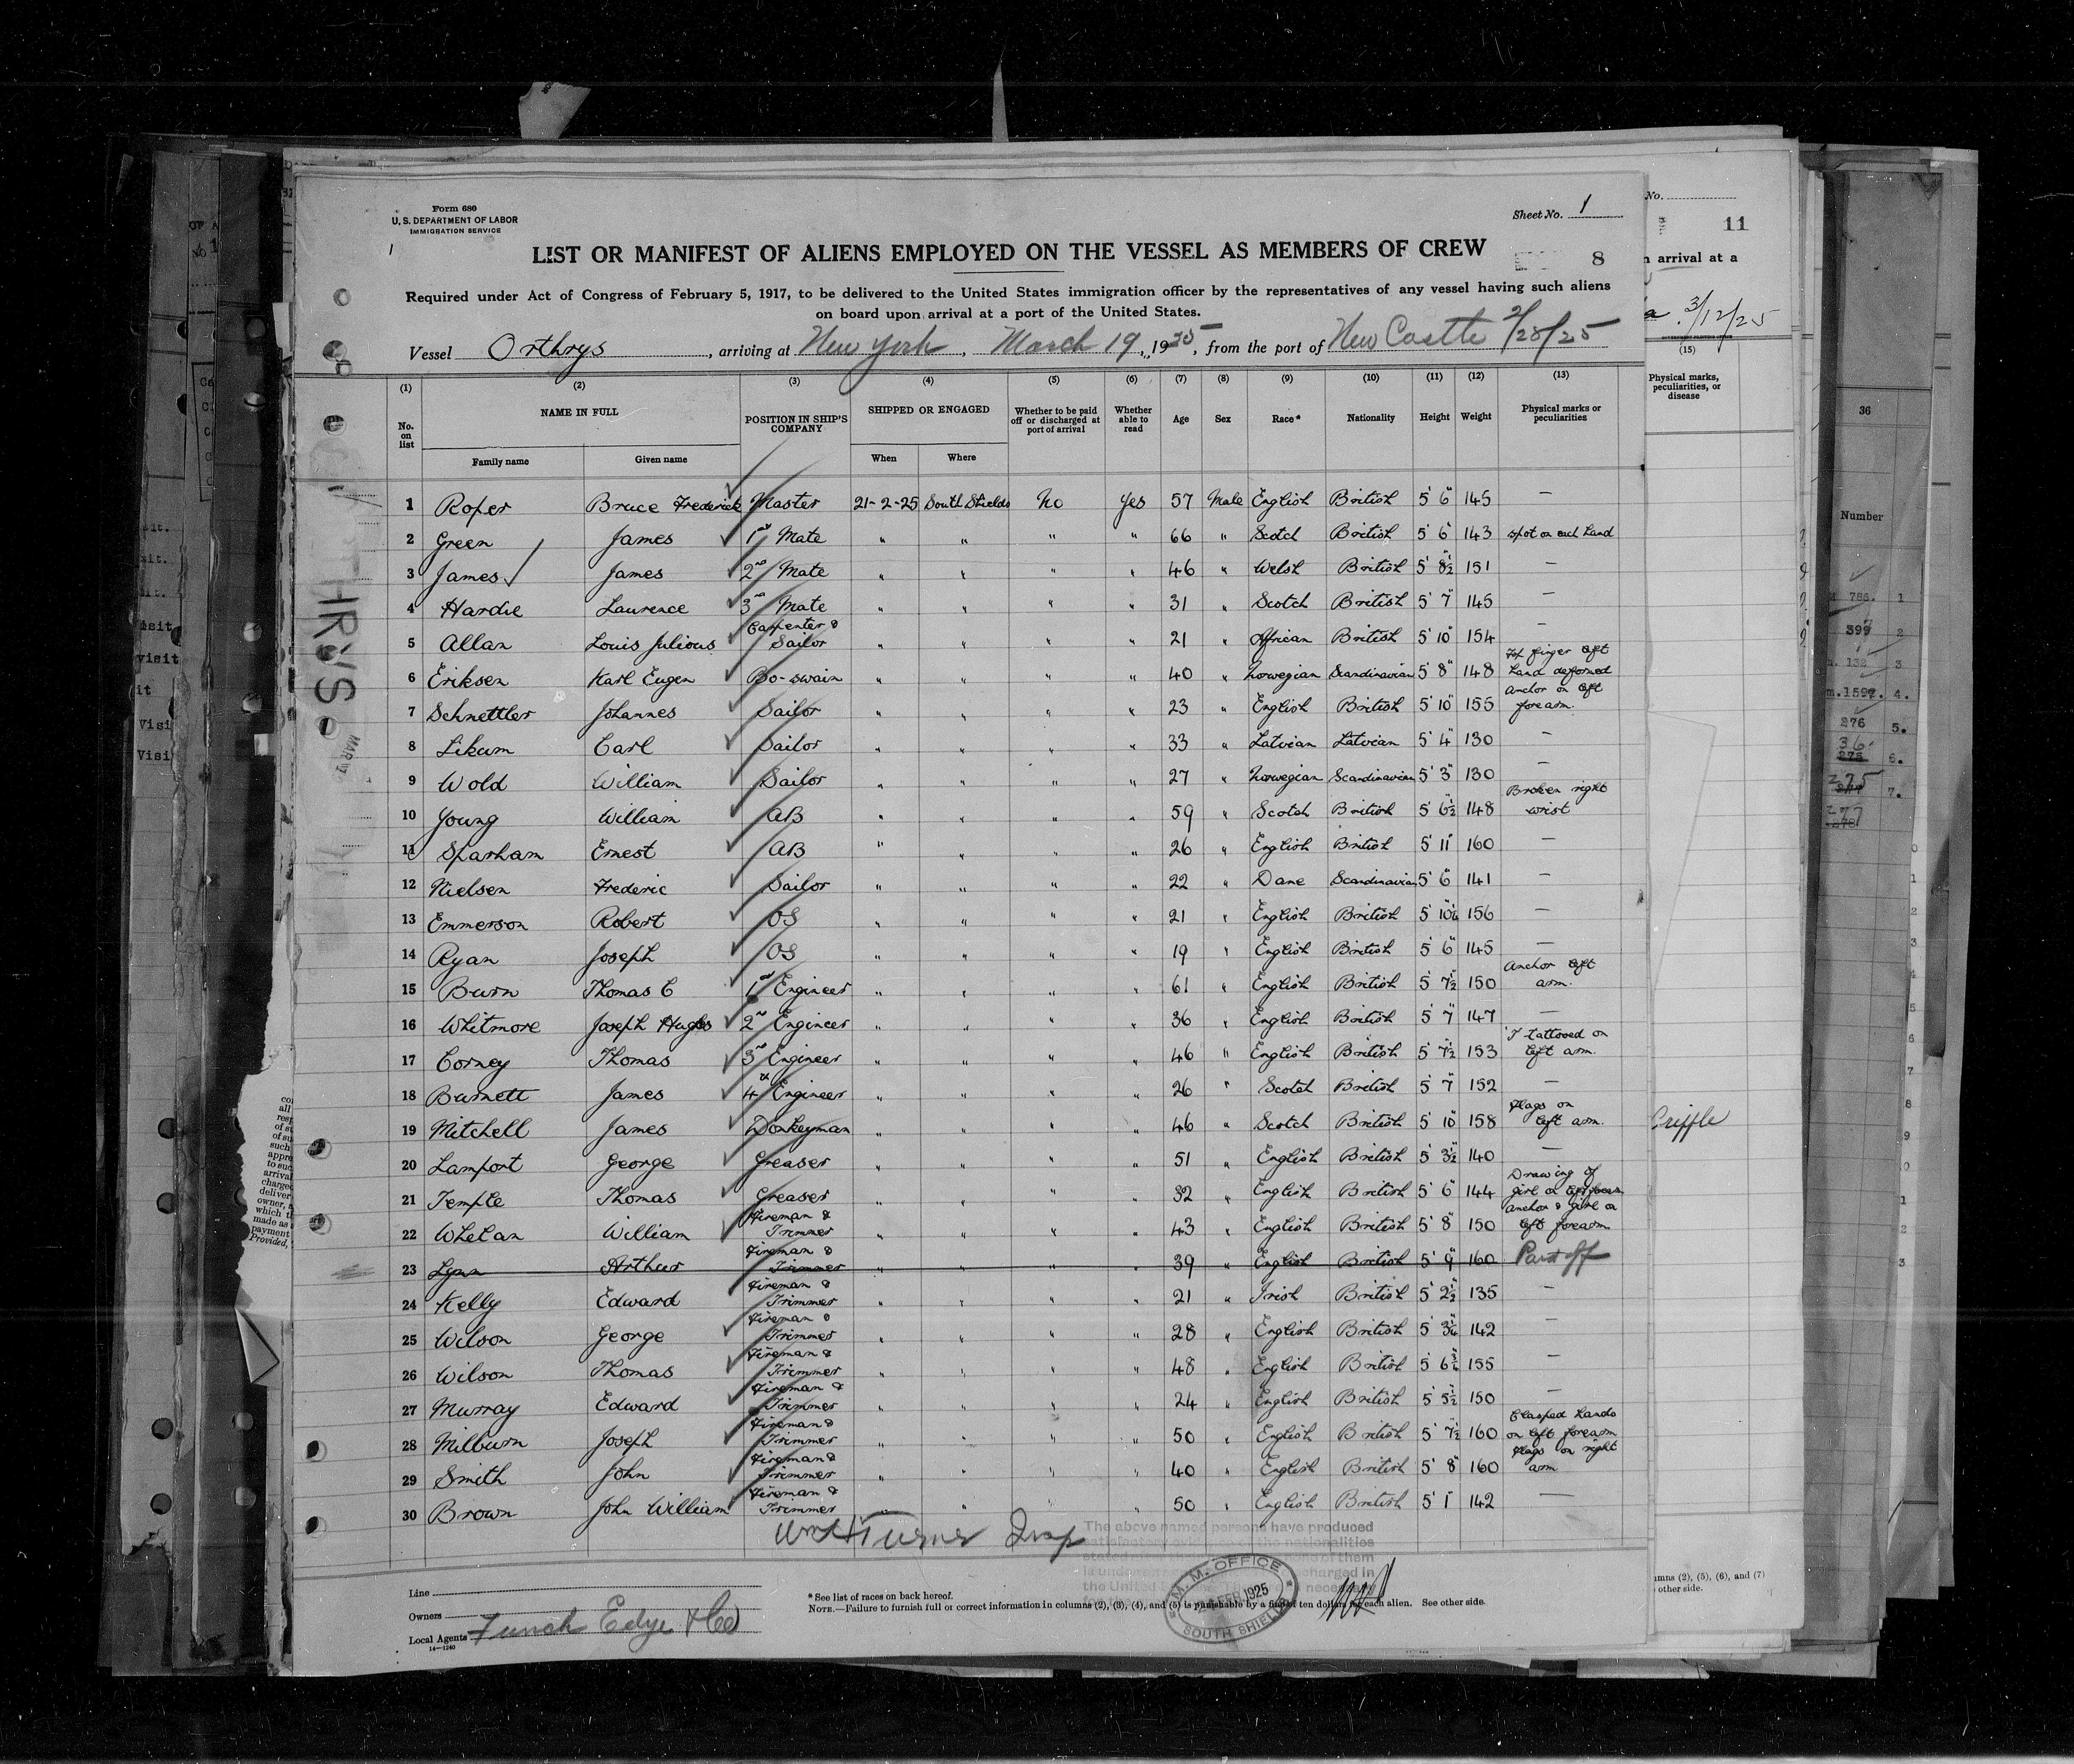 Form 680
U. S. DEPARTMENT OF LABOR
IMMIGRATION SERVICE
1
Sheet No. 1
8
LIST OR MANIFEST OF ALIENS EMPLOYED ON THE VESSEL AS MEMBERS OF CREW
Required under Act of Congress of February 5, 1917, to be delivered to the United States immigration officer by the representatives of any vessel having such aliens
on board upon arrival at a port of the United States.
Vessel Orthrys, arriving at New York, March 19, 1925, from the port of New Castle 2/28/25
(1) (2) (3) (4) (5) (6) (7) (8) (9) (10) (11) (12) (13)
No. on list NAME IN FULL POSITION IN SHIP'S COMPANY SHIPPED OR ENGAGED Whether to be paid off or discharged at port of arrival Whether able to read Age Sex Race* Nationality Height Weight Physical marks or peculiarities
Family name Given name When Where
1 Roper Bruce Frederick Master 21-2-25 South Shields No Yes 57 Male English British 5' 6" 145 —
2 Green James 1st Mate " " " " 66 " Scotch British 5' 6" 143 spot on each hand
3 James James 2nd Mate " " " " 46 " Welsh British 5' 8½" 151 —
4 Hardie Laurence 3rd Mate " " " " 31 " Scotch British 5' 7" 145 —
5 Allan Louis Julious Carpenter & Sailor " " " " 21 " African British 5' 10" 154 —
6 Eriksen Karl Eugen Bo-swain " " " " 40 " Norwegian Scandinavian 5' 8" 148 finger left hand deformed
7 Schnettler Johannes Sailor " " " " 23 " English British 5' 10" 155 anchor on left forearm.
8 Likum Carl Sailor " " " " 33 " Latvian Latvian 5' 4" 130 —
9 Wold William Sailor " " " " 27 " Norwegian Scandinavian 5' 3" 130 —
10 Young William AB " " " " 59 " Scotch British 5' 6½" 148 Broken right wrist
11 Sparham Ernest AB " " " " 26 " English British 5' 11" 160 —
12 Nielsen Frederic Sailor " " " " 22 " Dane Scandinavian 5' 6" 141 —
13 Emmerson Robert OS " " " " 21 " English British 5' 10 156 —
14 Ryan Joseph OS " " " " 19 " English British 5' 6" 145 —
15 Burn Thomas C 1st Engineer " " " " 61 " English British 5' 7½" 150 Anchor left arm.
16 Whitmore Joseph Hughes 2nd Engineer " " " " 36 " English British 5' 7" 147 —
17 Corney Thomas 3rd Engineer " " " " 46 " English British 5' 7½" 153 'T tattooed on left arm.
18 Burnett James 4th Engineer " " " " 26 " Scotch British 5' 7" 152 —
19 Mitchell James Donkeyman " " " " 46 " Scotch British 5' 10" 158 flags on left arm.
20 Lamport George Greaser " " " " 51 " English British 5' 3½" 140 —
21 Temple Thomas Greaser " " " " 32 " English British 5' 6" 144 Drawing of girl on left forearm
22 Whelan William Fireman & Trimmer " " " " 43 " English British 5' 8" 150 anchor & girl on left forearm
23 Lynn Arthur Fireman & Trimmer " " " " 39 " English British 5' 9" 160 Paid off
24 Kelly Edward Fireman & Trimmer " " " " 21 " Irish British 5' 2½" 135 —
25 Wilson George Fireman & Trimmer " " " " 28 " English British 5' 3 142 —
26 Wilson Thomas Fireman & Trimmer " " " " 48 " English British 5' 6 155 —
27 Murray Edward Fireman & Trimmer " " " " 24 " English British 5' 5½" 150 —
28 Milburn Joseph Fireman & Trimmer " " " " 50 " English British 5' 7½" 160 Clasped hands on left forearm
29 Smith John Fireman & Trimmer " " " " 40 " English British 5' 8" 160 flags on right arm
30 Brown John William Fireman & Trimmer " " " " 50 " English British 5' 1" 142 —
Turner Insp
The above named persons have produced
Line
Owners
Local Agents Funch Edye & Co
14—1240
*See list of races on back hereof.
NOTE.—Failure to furnish full or correct information in columns (2), (3), (4), and (5) is punishable by a fine of ten dollars for each alien. See other side.
M. M. OFFICE
FEB 1925
SOUTH SHIELDS
No.
11
arrival at a
3/12/25
(15)
Physical marks, peculiarities, or disease
Cripple
(2), (5), (6), and (7)
other side.
36
Number